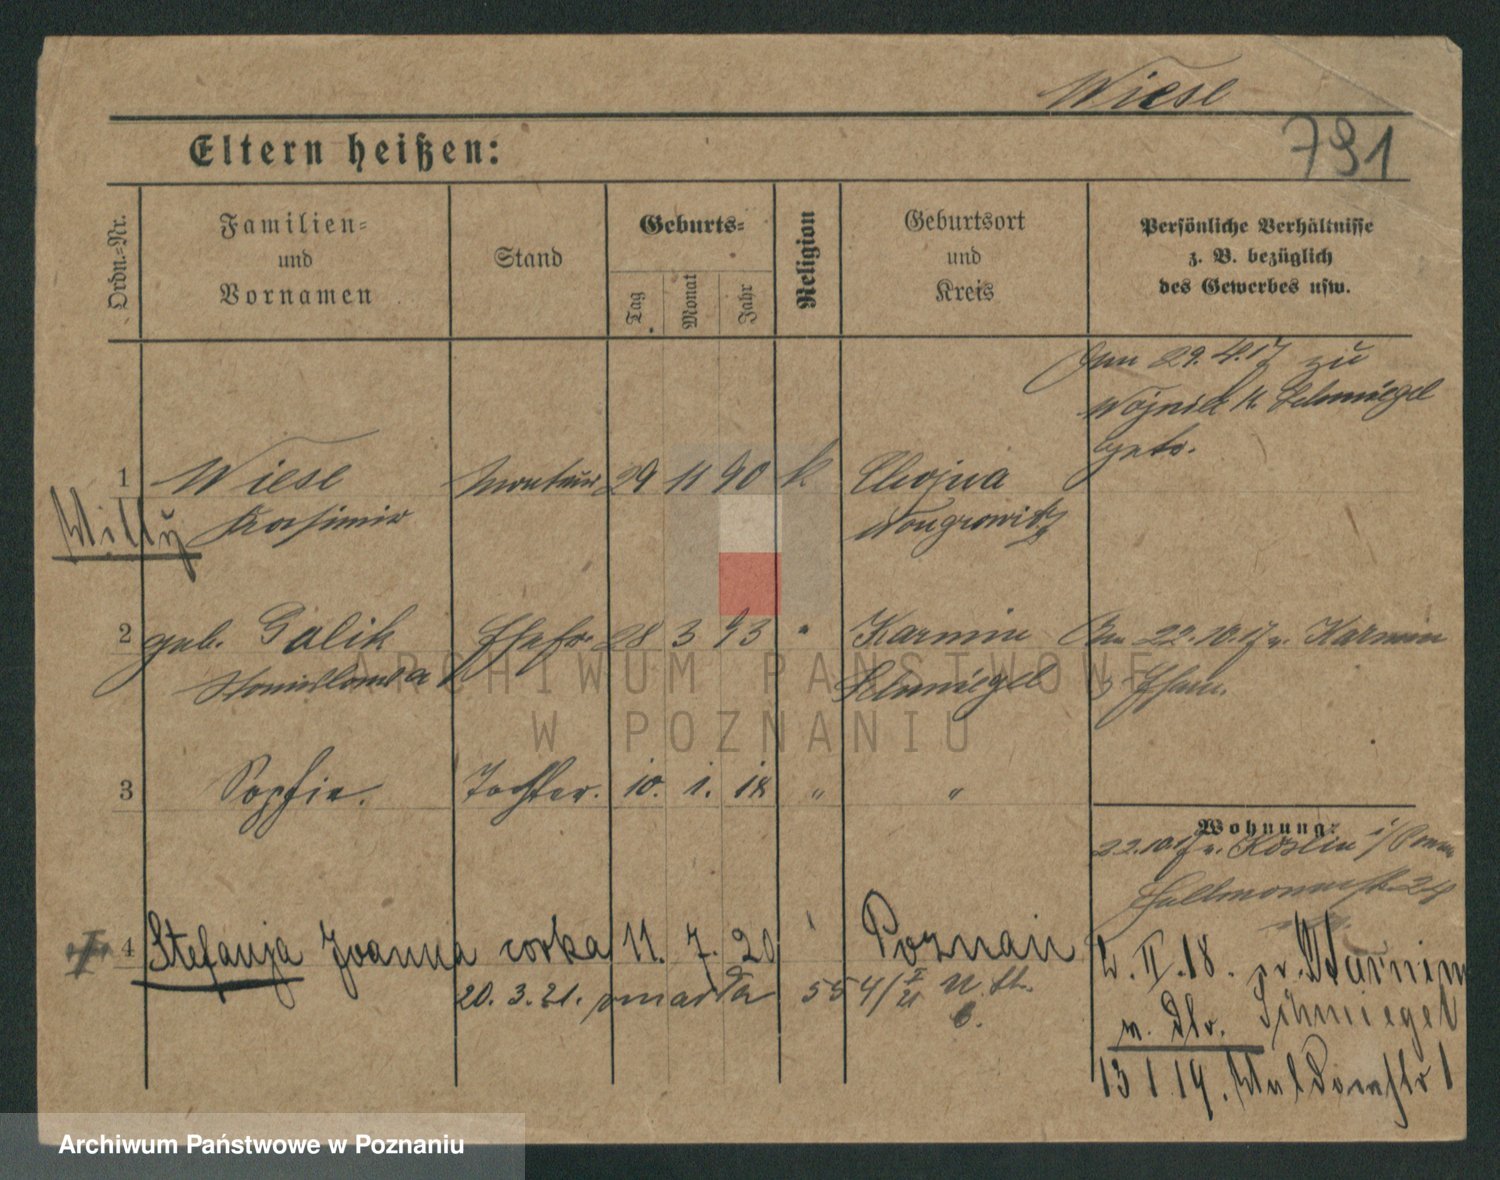 Wiese
791
Eltern heißen:
Ordn.-Nr.
Familien-
und
Vornamen
Stand
Geburts-
Tag
Monat
Jahr
Religion
Geburtsort
und
Kreis
Persönliche Verhältnisse
z. B. bezüglich
des Gewerbes usw.
Am 29.4.17 zu
Wojnitz K. Schmiegel
getr.
1 Wiese Monteur 29 11 90 k. Chojna
Willy Kasimir Wongrowitz
2 geb. Galik Ehefr. 28 3 93 " Karmin Am 22.10.17 v. Karmin
Stanislawa Schmiegel
ARCHIWUM PAŃSTWOWE
W POZNANIU
3 Sophie. Tochter. 10. 1. 18 " "
Wohnung:
22.10.17 v. Köslin i/Pomm
24
4 Stefanja Joanna córka 11. 7. 20 Poznań
2.II.18. v. Karmin
20. 3. 21. zmarła 554/21
Schmiegel
13 1 19.
Archiwum Państwowe w Poznaniu